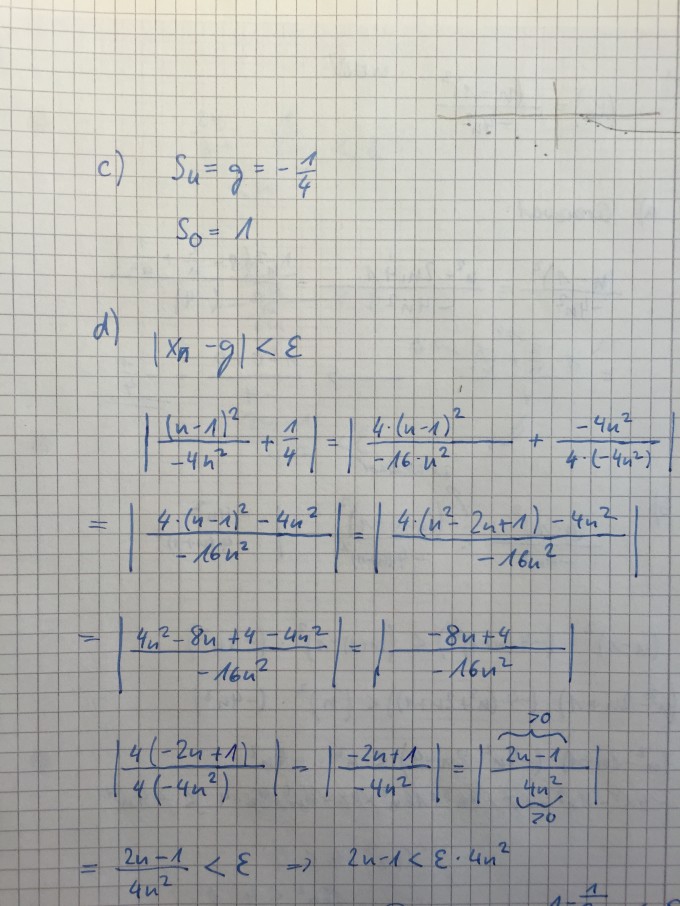 c) Su = g = - 1/4
So = 1
d) |xn - g| < ε
| (n-1)² / -4n² + 1/4 | = | 4·(n-1)² / -16·n² + -4n² / 4·(-4n²) |
= | 4·(n-1)² - 4n² / -16n² | = | 4·(n² - 2n+1) - 4n² / -16n² |
= | 4n² - 8n + 4 - 4n² / -16n² | = | -8n+4 / -16n² |
| 4(-2n+1) / 4(-4n²) | = | -2n+1 / -4n² | = | 2n-1 / 4n² | >0 >0
= 2n-1 / 4n² < ε => 2n-1 < ε · 4n²